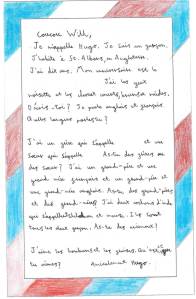 Coucou Will,
Je m'appelle Hugo. Je suis un garçon.
J'habite à St. Albans, en Angleterre.
J'ai dix ans. Mon anniversaire est le
J'ai les yeux
noisette et les cheveux courts,
Décris-Toi? Je parle anglais et français
Quelles langues parles-tu?
J'ai un frère qui s'appelle et une
sœur qui s'appelle As-tu des frères ou
des sœurs? J'ai un grand-père et une
grand-mère français et un grand-père et
une grand-mère As-tu des grand-pères
et des grand-mères? J'ai deux cochons d'inde
qui s'appellent et Ils sont
tous les deux As-tu des animaux?
J'aime les bonbons et les glaces. Qu'est-ce que
tu aimes? Amicalement Hugo.